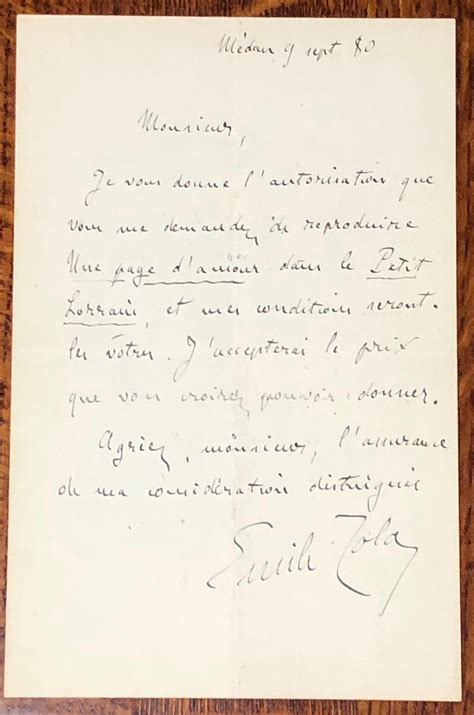 Médan 9 sept. 80
Monsieur,
Je vous donne l'autorisation que
vous me demandez de reproduire
Une page d'amour dans le Petit
Lorrain, et mes conditions seront
les vôtres. J'accepterai le prix
que vous croirez pouvoir donner.
Agréez, monsieur, l'assurance
de ma considération distinguée
Emile Zola